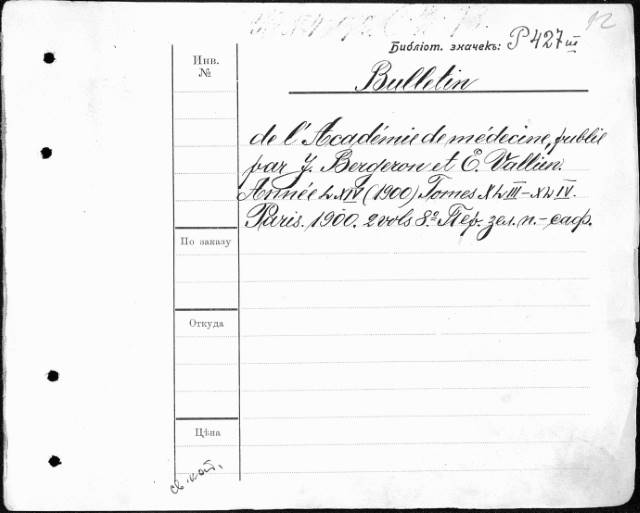 12
Библіот. значекъ: P 427 III
Инв.
№
Bulletin
de l'Académie de médecine, publié
par J. Bergeron et E. Vallien.
Année LXIV (1900) Tomes XLIII-XLIV.
Paris. 1900. 2 vols 8º. Пер. зел. п.-саф.
По заказу
Откуда
Цѣна
св. кат.